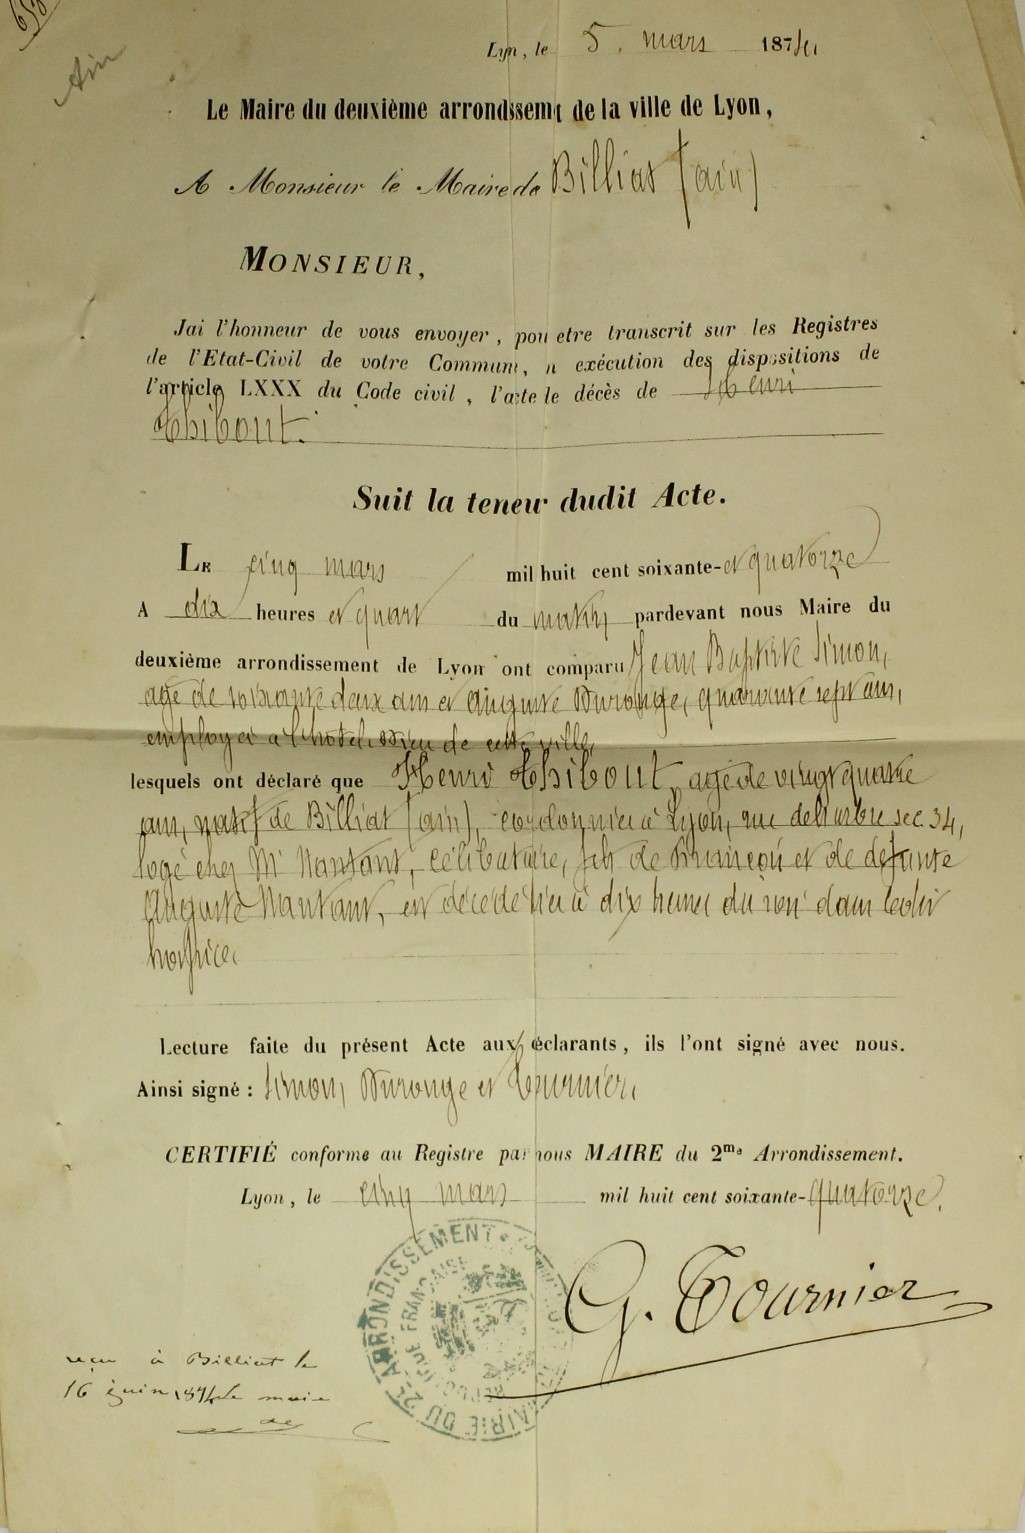 Ain
Lyon, le 5. mars 1874.
Le Maire du deuxième arrondissemt de la ville de Lyon,
A Monsieur le Maire de Billiat (ain)
MONSIEUR,
Jai l'honneur de vous envoyer, pou etre transcrit sur les Registres
de l'Etat-Civil de votre Commune, n exécution des dispositions de
l'article LXXX du Code civil, l'acte le décès de Henri
Thibout.
Suit la teneur dudit Acte.
LE cinq mars mil huit cent soixante-et quatorze
A dix heures et quart du matin pardevant nous Maire du
deuxième arrondissement de Lyon ont comparu Jean Baptiste Simon,
agé de soixante deux ans et Auguste Durouge, quarante sept ans,
employés à l'hotel-Dieu de cette ville,
lesquels ont déclaré que Henri Thibout, agé de vingt quatre
ans, natif de Billiat (ain), cordonnier à Lyon, rue de l'arbre sec 34,
logé chez Mr Nantant, célibataire, fils de François et de défunte
Auguste Nantant, est décédé hier à dix heures du soir dans ledit
hospice.
Lecture faite du présent Acte aux déclarants, ils l'ont signé avec nous.
Ainsi signé : Simon, Durouge et Tournier.
CERTIFIÉ conforme au Registre par nous MAIRE du 2me Arrondissement.
Lyon, le cinq mars mil huit cent soixante-quatorze.
G. Tournier
MAIRIE DU 2E ARRONDISSEMENT
REPUBLIQUE FRANÇAISE
reçu à Billiat le
16 juin 1874 le maire